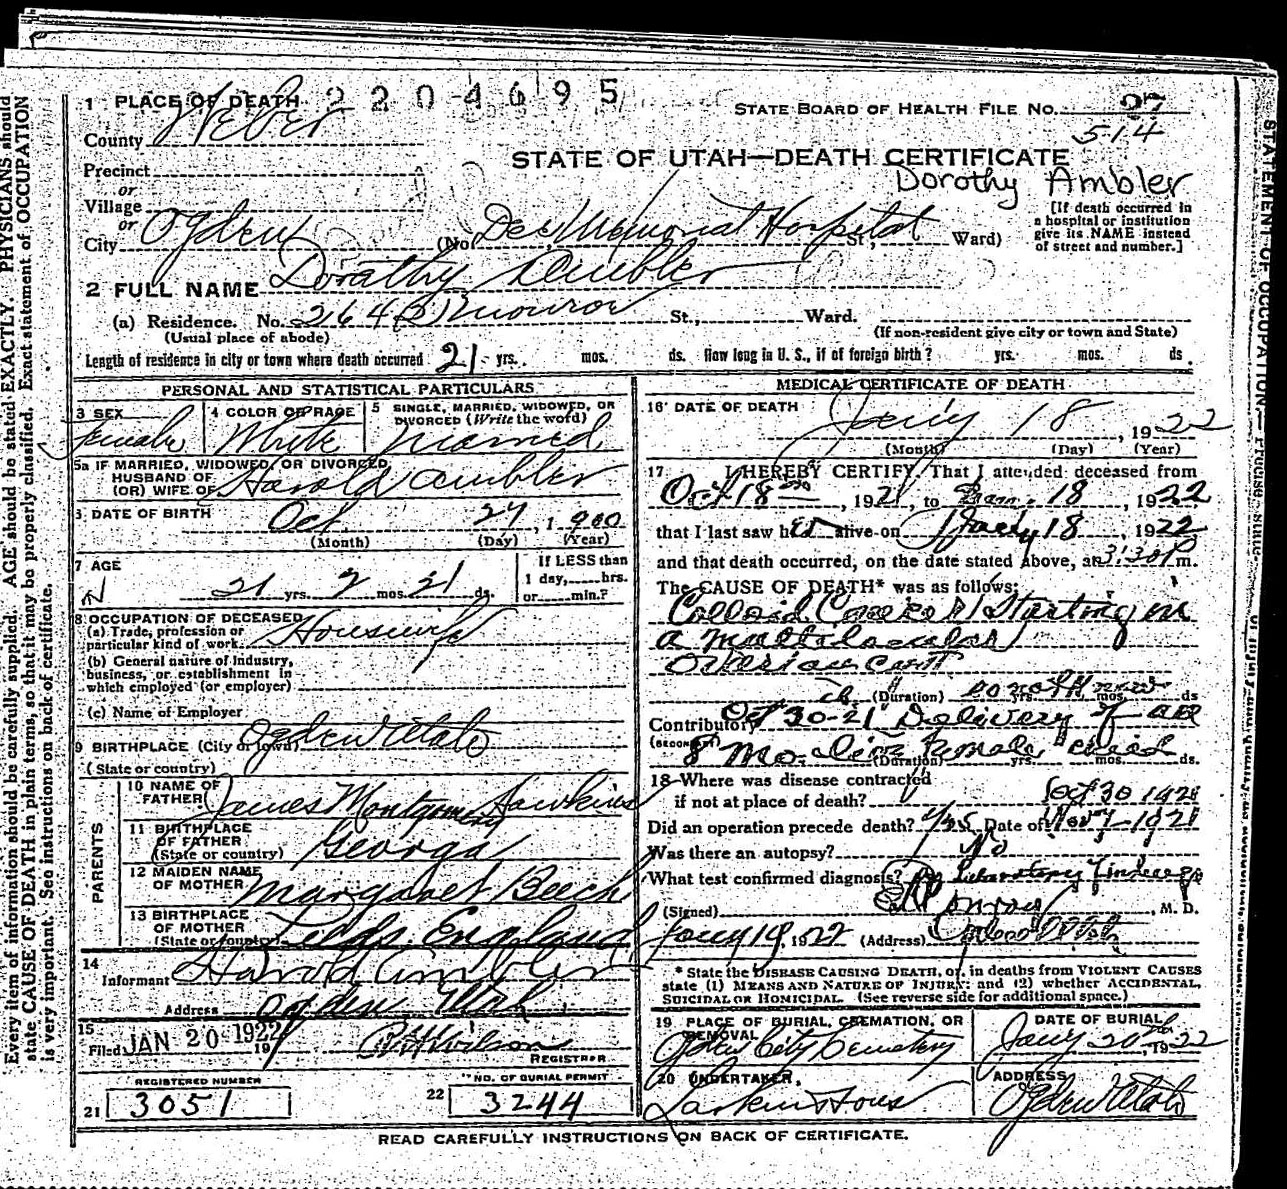 2204695
1 PLACE OF DEATH
STATE BOARD OF HEALTH FILE No. 27
514
County Weber
STATE OF UTAH—DEATH CERTIFICATE
Dorothy Ambler
Precinct
or
Village
or
City Ogden (No. Dee Memorial Hospital St., Ward)
[If death occurred in
a hospital or institution
give its NAME instead
of street and number.]
2 FULL NAME Dorathy Ambler
(a) Residence. No. 2643 Monroe St., Ward.
(Usual place of abode)
(If non-resident give city or town and State)
Length of residence in city or town where death occurred 21 yrs. mos. ds. How long in U. S., if of foreign birth? yrs. mos. ds.
PERSONAL AND STATISTICAL PARTICULARS
3 SEX
Female
4 COLOR OR RACE
White
5 SINGLE, MARRIED, WIDOWED, OR
DIVORCED (Write the word)
Married
5a IF MARRIED, WIDOWED, OR DIVORCED
HUSBAND OF
(OR) WIFE OF Harold Ambler
6 DATE OF BIRTH Oct 27, 1900
(Month) (Day) (Year)
7 AGE
21 yrs. 2 mos. 21 ds.
If LESS than
1 day, hrs.
or min.?
8 OCCUPATION OF DECEASED
(a) Trade, profession or
particular kind of work Housewife
(b) General nature of Industry,
business, or establishment in
which employed (or employer)
(c) Name of Employer
9 BIRTHPLACE (City or town) Ogden Utah
(State or country)
PARENTS
10 NAME OF
FATHER James Hawkins
11 BIRTHPLACE
OF FATHER
(State or country) Georga
12 MAIDEN NAME
OF MOTHER Margaret Beech
13 BIRTHPLACE
OF MOTHER
(State or country) Leeds, England
14
Informant Harold Ambler
Address Ogden Utah
15
Filed JAN 20 1922 19 Wilson
REGISTRAR
REGISTERED NUMBER
21 3051
NO. OF BURIAL PERMIT
22 3244
MEDICAL CERTIFICATE OF DEATH
16 DATE OF DEATH Jany 18, 1922
(Month) (Day) (Year)
17 I HEREBY CERTIFY, That I attended deceased from
Oct 18, 1921, to Jan. 18, 1922
that I last saw her alive on Jany 18, 1922
and that death occurred, on the date stated above, at 3:30 P m.
The CAUSE OF DEATH* was as follows:
Colloid Cancer Starting in
a multilocular
ovarian cyst
(Duration) yrs. mos. ds
Contributory Oct 30-21 Delivery of an
(SECONDARY) 8 Mo. living Female child
(Duration) yrs. mos. ds.
18 Where was disease contracted
if not at place of death? Oct 30 1921
Did an operation precede death? Yes Date of Nov 7-1921
Was there an autopsy? No
What test confirmed diagnosis? Laboratory
(Signed) Conroy, M. D.
Jany 19, 1922 (Address) Ogden Utah
* State the DISEASE CAUSING DEATH, or, in deaths from VIOLENT CAUSES
state (1) MEANS AND NATURE OF INJURY; and (2) whether ACCIDENTAL,
SUICIDAL OR HOMICIDAL. (See reverse side for additional space.)
19 PLACE OF BURIAL, CREMATION, OR
REMOVAL
Ogden City Cemetery
DATE OF BURIAL
Jany 20th, 1922
20 UNDERTAKER,
Larkin & Sons
ADDRESS
Ogden Utah
READ CAREFULLY INSTRUCTIONS ON BACK OF CERTIFICATE.
Every item of information should be carefully supplied. AGE should be stated EXACTLY. PHYSICIANS should
state CAUSE OF DEATH in plain terms, so that it may be properly classified. Exact statement of OCCUPATION
is very important. See instructions on back of certificate.
STATEMENT OF OCCUPATION